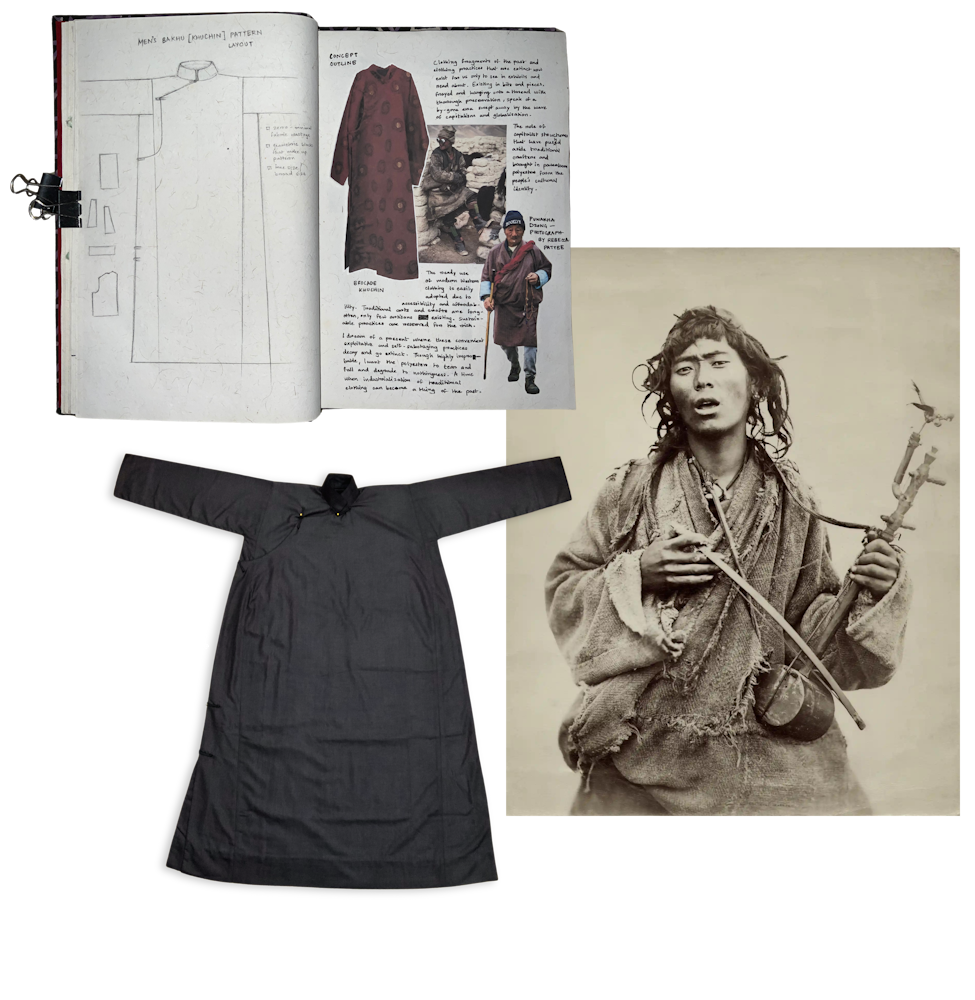 MEN'S BAKHU [KHUCHIN] PATTERN
LAYOUT
CONCEPT
OUTLINE
Clothing fragments of the past and
clothing practices that are extinct and
exist for us only to see in exhibits and
read about. Existing in bits and pieces,
frayed and hanging onto a thread with
thorough preservation, speak of a
by-gone era swept away by the wave
of capitalism and globalization.
The role of
capitalist structures
that have pushed
aside traditional
crafters and
brought in
polyester form the
people's cultural
identity.
PUNAKHA
DZONG —
PHOTOGRAPH
BY REBECCA
PATTEE
BROCADE
KHUCHIN
The ready use
of modern Western
clothing is easily
adopted due to
accessibility and affordab-
ility. Traditional arts and crafts are long-
often, only few artisans existing. Sustain-
able practices are reserved for the rich.
I dream of a present where these convenient
exploitative and self-sabotaging practices
decay and go extinct. Though highly
I want the polyester to tear and
fall and degrade to nothingness. A time
when industrialization of traditional
clothing can become a thing of the past.